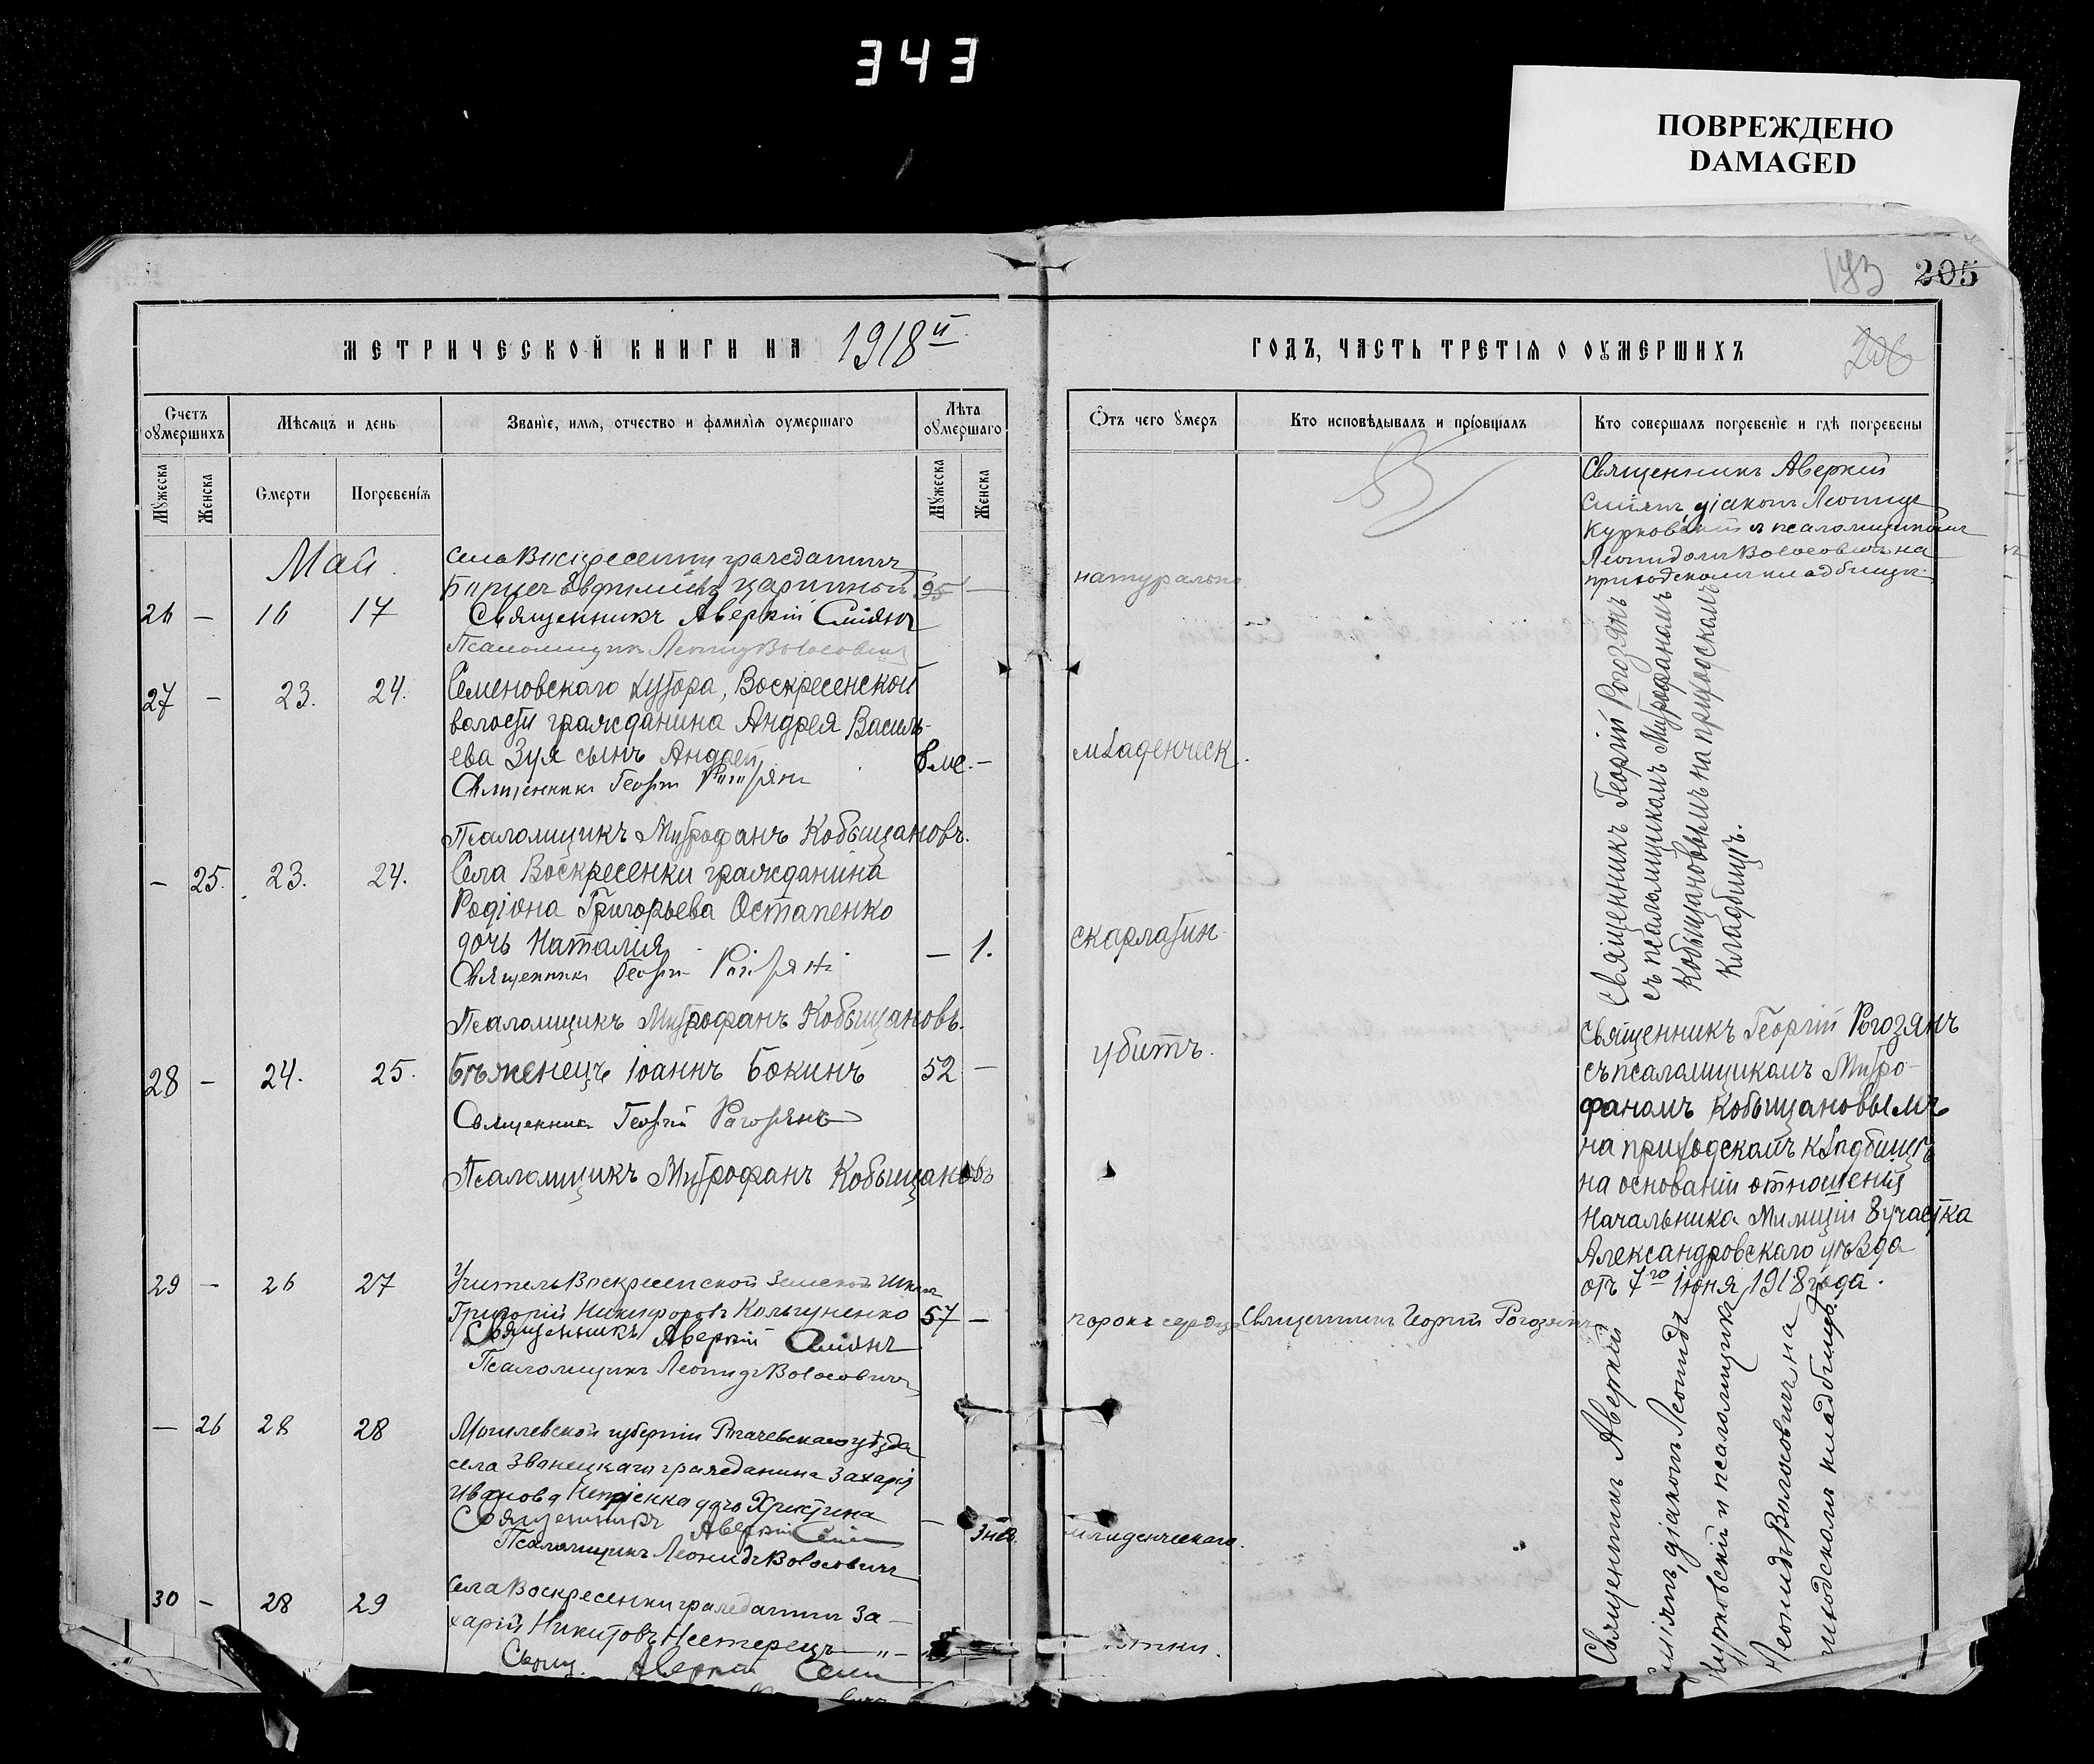 343
ПОВРЕЖДЕНО
DAMAGED
183 205
МЕТРИЧЕСКОЙ КНИГИ НА 1918й
Счетъ оумершихъ
Мѣсяцъ и день
Званіе, имя, отчество и фамилія оумершаго
Лѣта оумершаго
Мужеска
Женска
Смерти
Погребенія
Мужеска
Женска
Май
граждaнинъ
26 — 16 17
Священникъ Аверкій
Псаломщикъ Леонидъ Волосовичъ
27 — 23. 24. Семеновскаго хутора, Воскресенской
волости гражданина Андрея Василь-
ева Зуя сынъ Андрей —
Священникъ Георгій
Псаломщикъ Митрофанъ Кобыщановъ.
— 25. 23. 24. Села Воскресенки гражданина
Родіона Григорьева Остапенко
дочь Наталія — 1.
Священникъ Георгій
Псаломщикъ Митрофанъ Кобыщановъ.
28 — 24. 25. Бѣженецъ Іоаннъ Бокинъ 52 —
Священникъ Георгій Рогозянъ
Псаломщикъ Митрофанъ Кобыщановъ
29 — 26 27 Учитель Воскресенской Земской Школы
Григорій Никифоровъ Кольчуненко 57 —
Священникъ Аверкій
Псаломщикъ Леонидъ Волосовичъ
— 26 28 28 Могилевской губерніи Рогачевскаго уѣзда
села Званецкаго гражданина Захарія
Иванова дочь Христина —
Священникъ Аверкій
Псаломщикъ Леонидъ Волосовичъ
30 — 28 29 Села Воскресенки гражданинъ За-
харій Никитовъ Нестерецъ
Свящ. Аверкій
ГОДЪ, ЧАСТЬ ТРЕТІЯ О ОУМЕРШИХЪ
206
Ѿтъ чего умеръ
Кто исповѣдывалъ и пріобщалъ
Кто совершалъ погребеніе и гдѣ погребены
Священникъ Аверкій
діаконъ Леонидъ
Курковскій и псаломщикомъ
Леонидомъ Волосовичъ на
приходскомъ кладбищѣ.
натурально
младенческ.
Священникъ Георгій Рогозянъ
съ псаломщикомъ Митрофаномъ
Кобыщановымъ на приходскомъ
кладбищѣ.
скарлатин.
убитъ.
Священникъ Георгій Рогозянъ
съ псаломщикомъ Митро-
фаномъ Кобыщановымъ
на приходскомъ кладбищѣ
на основаніи отношенія
Начальника Милиціи 8 участка
Александровскаго уѣзда
отъ 7го Іюня 1918 года.
порокъ сердца Священникъ Георгій Рогозянъ
младенческаго.
Священникъ Аверкій
діаконъ Леонидъ
Курковскій и псаломщикъ
Леонидъ Волосовичъ на
приходскомъ кладбищѣ.